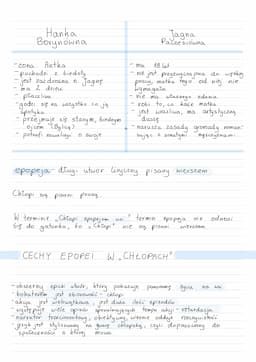 Hanka
Borynówna
- żona Antka
- pochodzi z biedoty
- jest zazdrosna o Jagnę
- ma 2 dzieci
- płaczliwa
- godzi się na wszystko co ją
spotyka
- przejmuje się starym, biednym
ojcem (Bylicą)
- potrafi zawalczyć o swoje
Jagna
Paczesiówna
- ma 19 lat
- nie jest przyzwyczajona do ciężkiej
pracy, matka tego od niej nie
wymagała
- nie ma własnego zdania
- robi to, co każe matka
- jest wrażliwa, ma artystyczną
duszę
- narusza zasady gromady roman-
sując z żonatymi mężczyznami
epopeja - długi utwór liryczny pisany wierszem
Chłopi są pisani prozą.
W terminie „Chłopi epopejom wsi" termin epopeja nie odnosi
się do gatunku, bo „Chłopi" nie są pisani wierszem.
CECHY EPOPEI W „CHŁOPACH"
- obszerny epicki utwór, który pokazuje panoramę życia na wsi
- bohaterem jest zbiorowość - chłopi
- akcja jest wielowątkowa, jest dużo ilości epizodów
- występuje wiele opisów spowalniających tempo akcji - retardacja
- narrator trzecioosobowy, obiektywny, wiernie oddaje rzeczywistość
- język jest stylizowany na gwarę chłopską, czyli dopasowany do
społeczności o której mowa